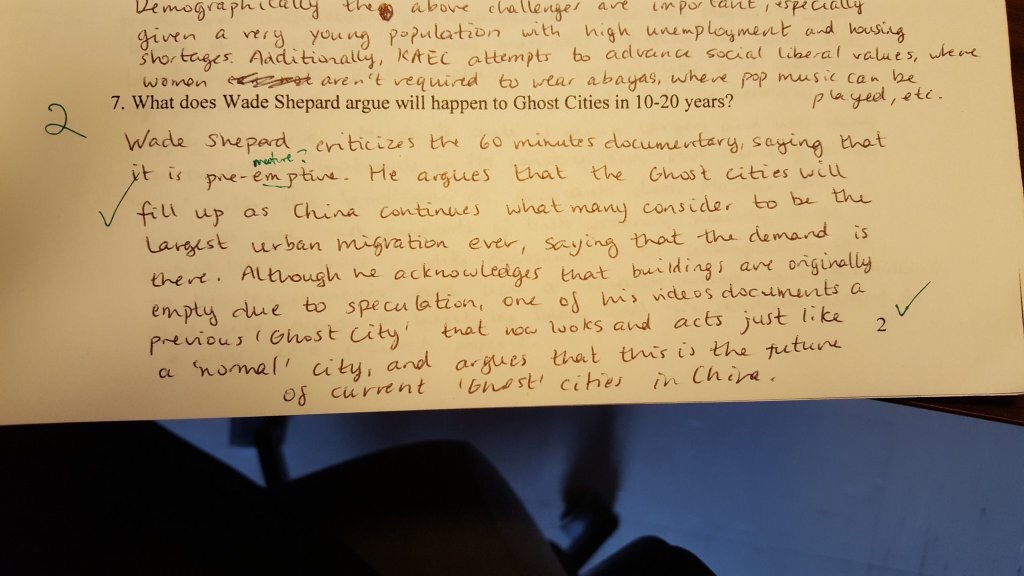 Demographically the above challenges are important, especially
given a very young population with high unemployment and housing
shortages. Additionally, KAEC attempts to advance social liberal values, where
women aren't required to wear abayas, where pop music can be
played, etc.
7. What does Wade Shepard argue will happen to Ghost Cities in 10-20 years?
2
Wade Shepard criticizes the 60 minutes documentary, saying that
mature?
it is pre-emptive. He argues that the Ghost cities will
fill up as China continues what many consider to be the
largest urban migration ever, saying that the demand is
there. Although he acknowledges that buildings are originally
empty due to speculation, one of his videos documents a
previous 'Ghost City' that now looks and acts just like
2
a 'normal' city, and argues that this is the future
of current 'Ghost' cities in China.